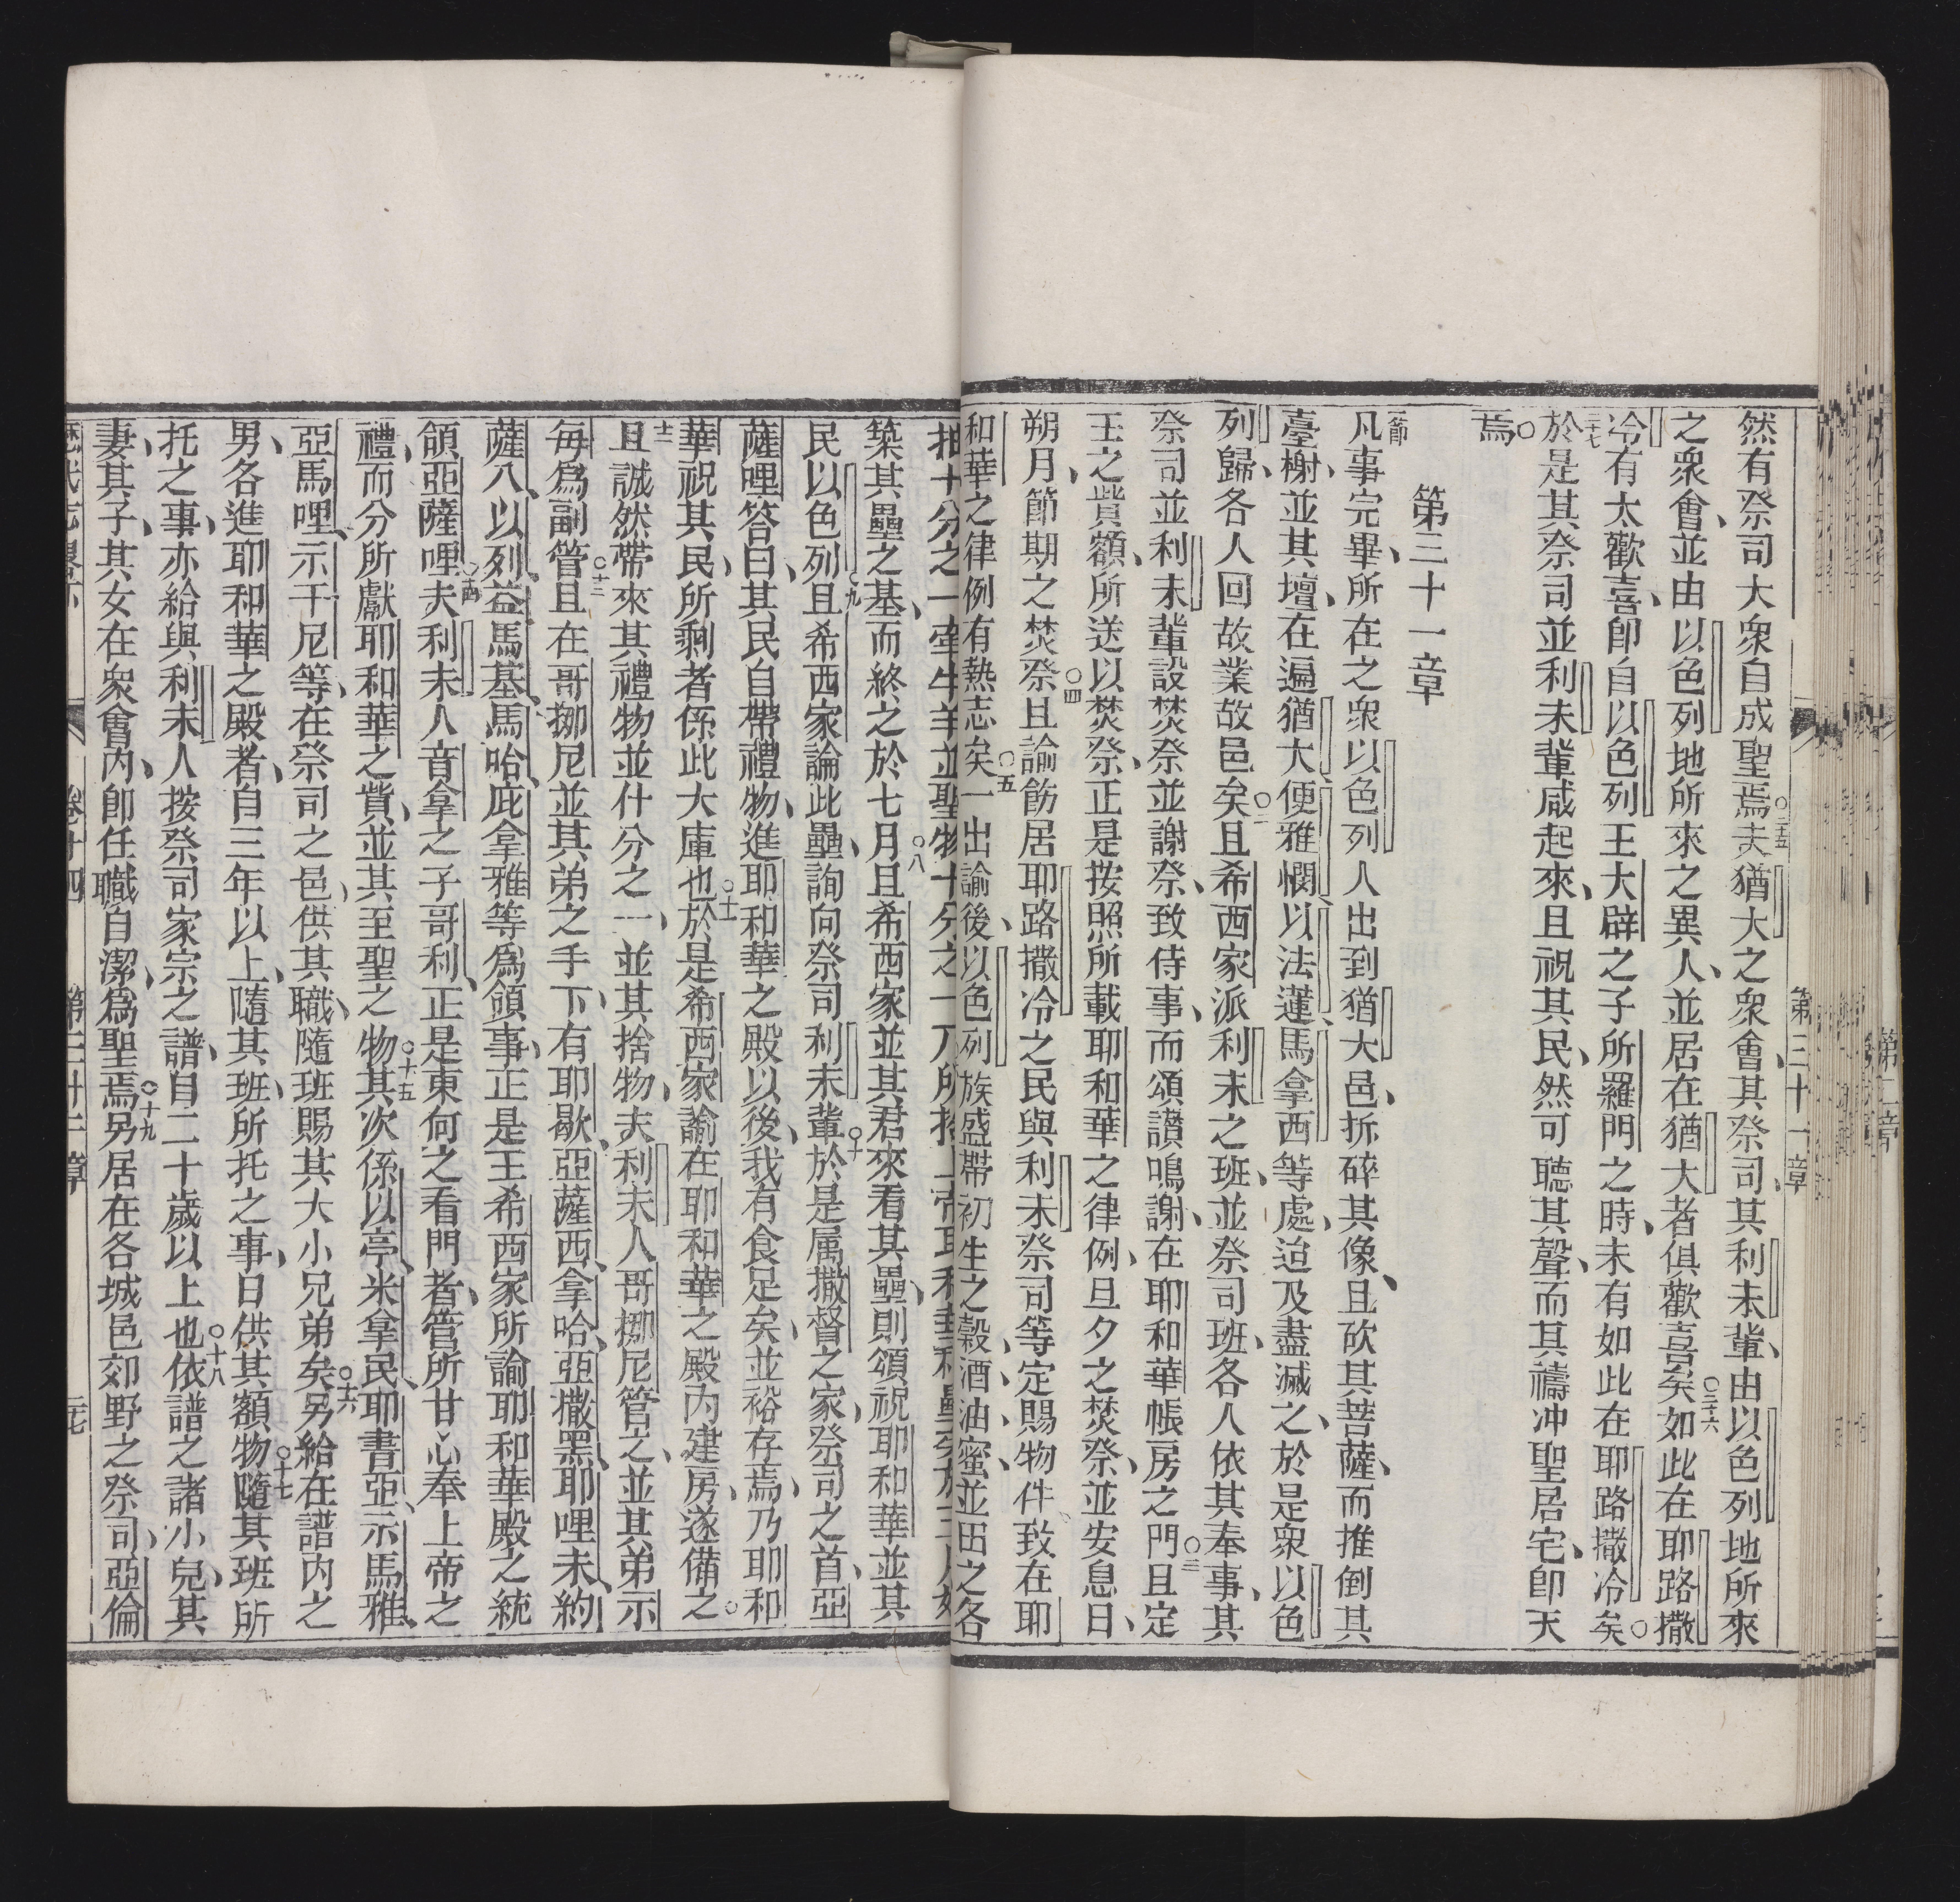 第三十一章
然有祭司大衆自成聖焉○三十五夫猶大之衆會其祭司其利未輩由以色列地所來
之衆會並由以色列地所來之異人並居在猶大者俱歡喜矣○三十六如此在耶路撒
冷有太歡喜卽自以色列王大辟之子所羅門之時未有如此在耶路撒冷矣○
三十七於是其祭司並利未輩咸起來且祝其民然可聽其聲而其禱冲聖居宅卽天
焉○
第三十一章
一節凡事完畢所在之衆以色列人出到猶大邑拆碎其像且砍其菩薩而推倒其
臺榭並其壇在遍猶大便雅憫以法蓮馬拿西等處迨及盡滅之於是衆以色
列歸各人回故業故邑矣○二且希西家派利未之班並祭司班各人依其奉事其
祭司並利未輩設焚祭並謝祭致侍事而頌讃鳴謝在耶和華帳房之門○三且定
王之貲額所送以焚祭正是按照所載耶和華之律例旦夕之焚祭並安息日
朔月節期之焚祭○四且諭飭居耶路撒冷之民與利未祭司等定賜物件致在耶
和華之律例有熱志矣○五一出諭後以色列族盛帶初生之穀酒油蜜並田之各
築其壘之基而終之於七月○八且希西家並其君來看其壘則頌祝耶和華並其
民以色列○九且希西家論此壘詢向祭司利未輩○十於是属撒督之家祭司之首亞
薩哩答曰其民自帶禮物進耶和華之殿以後我有食足矣並裕存焉乃耶和
華祝其民所剩者係此大庫也○十一於是希西家諭在耶和華之殿內建房遂備之○
十二且誠然帶來其禮物並什分之一並其捨物夫利未人哥挪尼管之並其弟示
每爲副管○十三且在哥挪尼並其弟之手下有耶歇亞薩西拿哈亞撒黑耶哩未約
薩八以列益馬基馬哈庇拿雅等爲領事正是王希西家所諭耶和華殿之統
領亞薩哩○十四夫利未人音拿之子哥利正是東向之看門者管所甘心奉上帝之
禮而分所獻耶和華之貲並其至聖之物○十五其次係以亭米拿民耶書亞示馬雅
亞馬哩示干尼等在祭司之邑供其職隨班賜其大小兄弟矣○十六另給在譜內之
男各進耶和華之殿者自三年以上隨其班所托之事日供其額物○十七隨其班所
托之事亦給與利未人按祭司家宗之譜自二十歲以上也○十八依譜之諸小兒其
妻其子其女在衆會內卽任職自潔爲聖焉○十九另居在各城邑郊野之祭司亞倫
卷十四
第三十一章